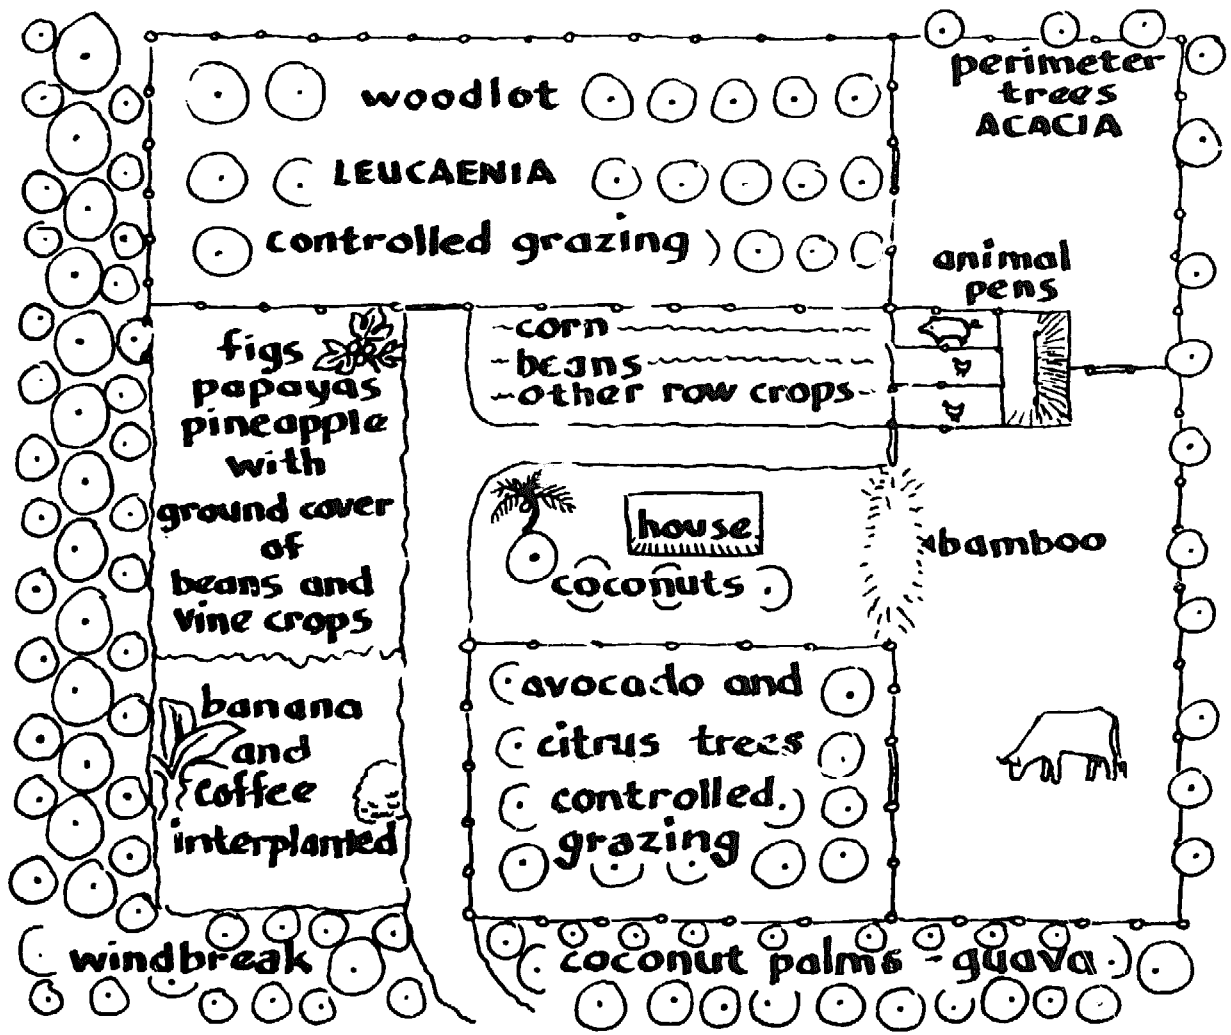 woodlot
LEUCAENIA
controlled grazing
perimeter
trees
ACACIA
animal
pens
figs
papayas
pineapple
with
ground cover
of
beans and
vine crops
corn
beans
other row crops
house
coconuts
bamboo
banana
and
coffee
interplanted
avocado and
citrus trees
controlled
grazing
windbreak
coconut palms - guava